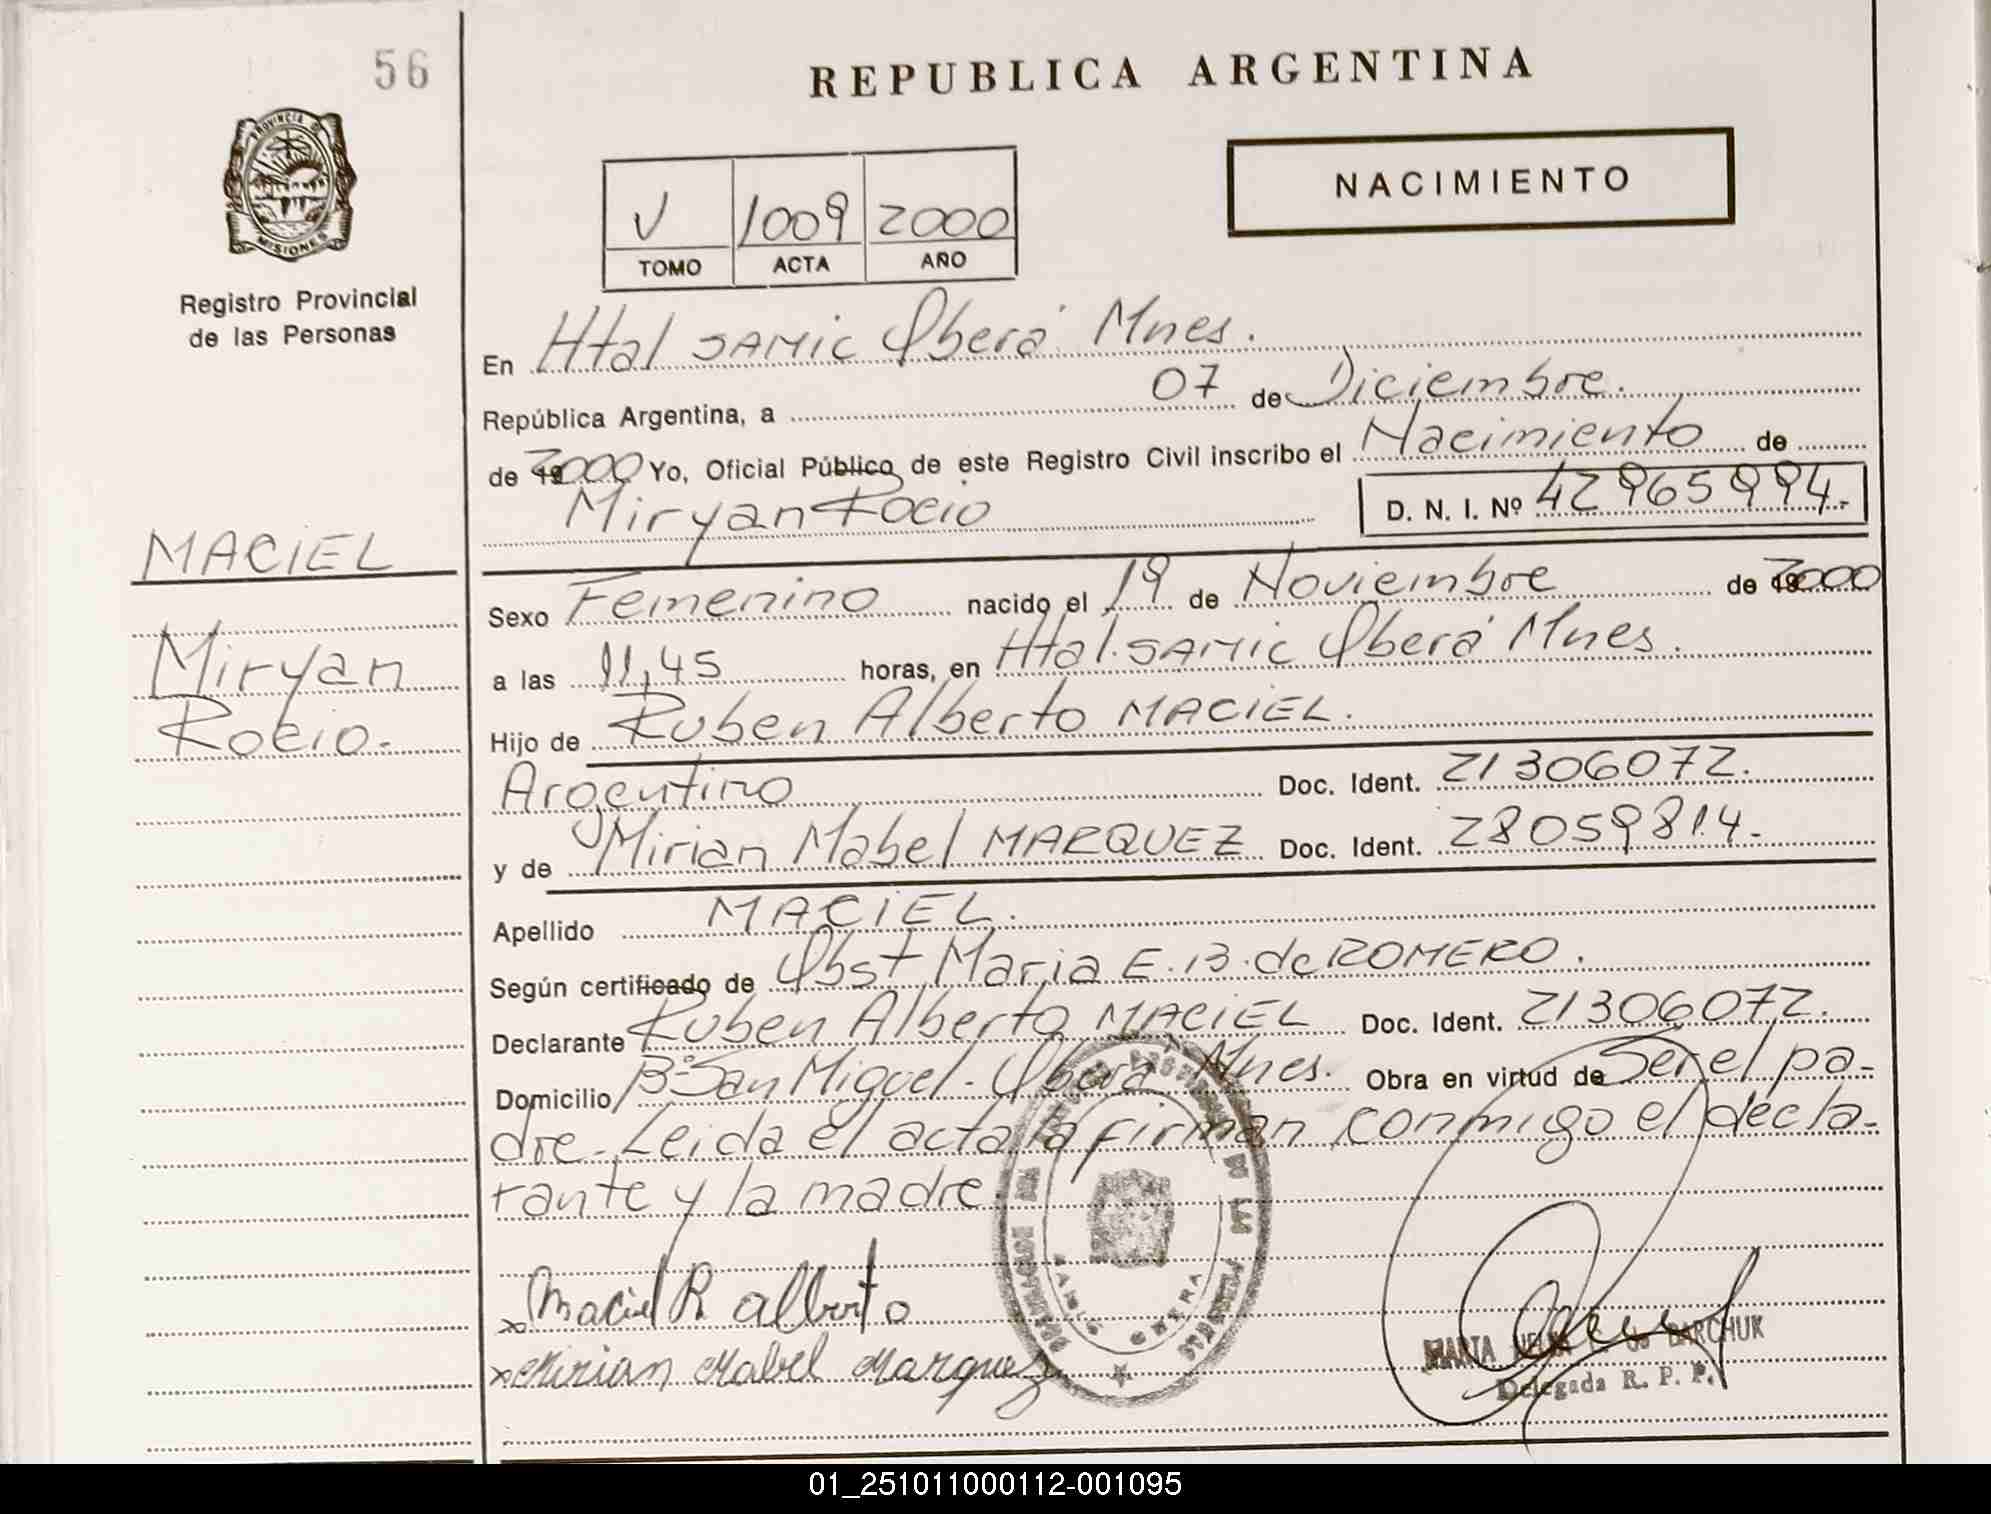 56
REPUBLICA ARGENTINA
PROVINCIA D MISIONES
NACIMIENTO
V 1009 2000
TOMO ACTA AÑO
Registro Provincial
de las Personas
En Htal SAMIC Oberá Mnes.
República Argentina, a 07 de Diciembre.
de 2000 Yo, Oficial Público de este Registro Civil inscribo el Nacimiento de
Miryan Rocio D. N. I. Nº 42965994.-
MACIEL
Miryan
Rocio.-
Sexo Femenino nacido el 19 de Noviembre de 2000
a las 11,45 horas, en Htal. SAMIC Oberá Mnes.
Hijo de Ruben Alberto MACIEL.
Argentino Doc. Ident. 21306072.
y de Mirian Mabel MARQUEZ Doc. Ident. 28059814.-
Apellido MACIEL.
Según certificado de Obst Maria E. B. de ROMERO.
Declarante Ruben Alberto MACIEL Doc. Ident. 21306072.
Domicilio Bº San Miguel - Oberá Mnes. Obra en virtud de Ser el pa-
dre - Leida el acta la firman conmigo el decla-
rante y la madre
x Maciel R alberto
x Mirian Mabel Marquez
MARTA de BARCHUK
Delegada R. P. P.
OBERA
01_251011000112-001095